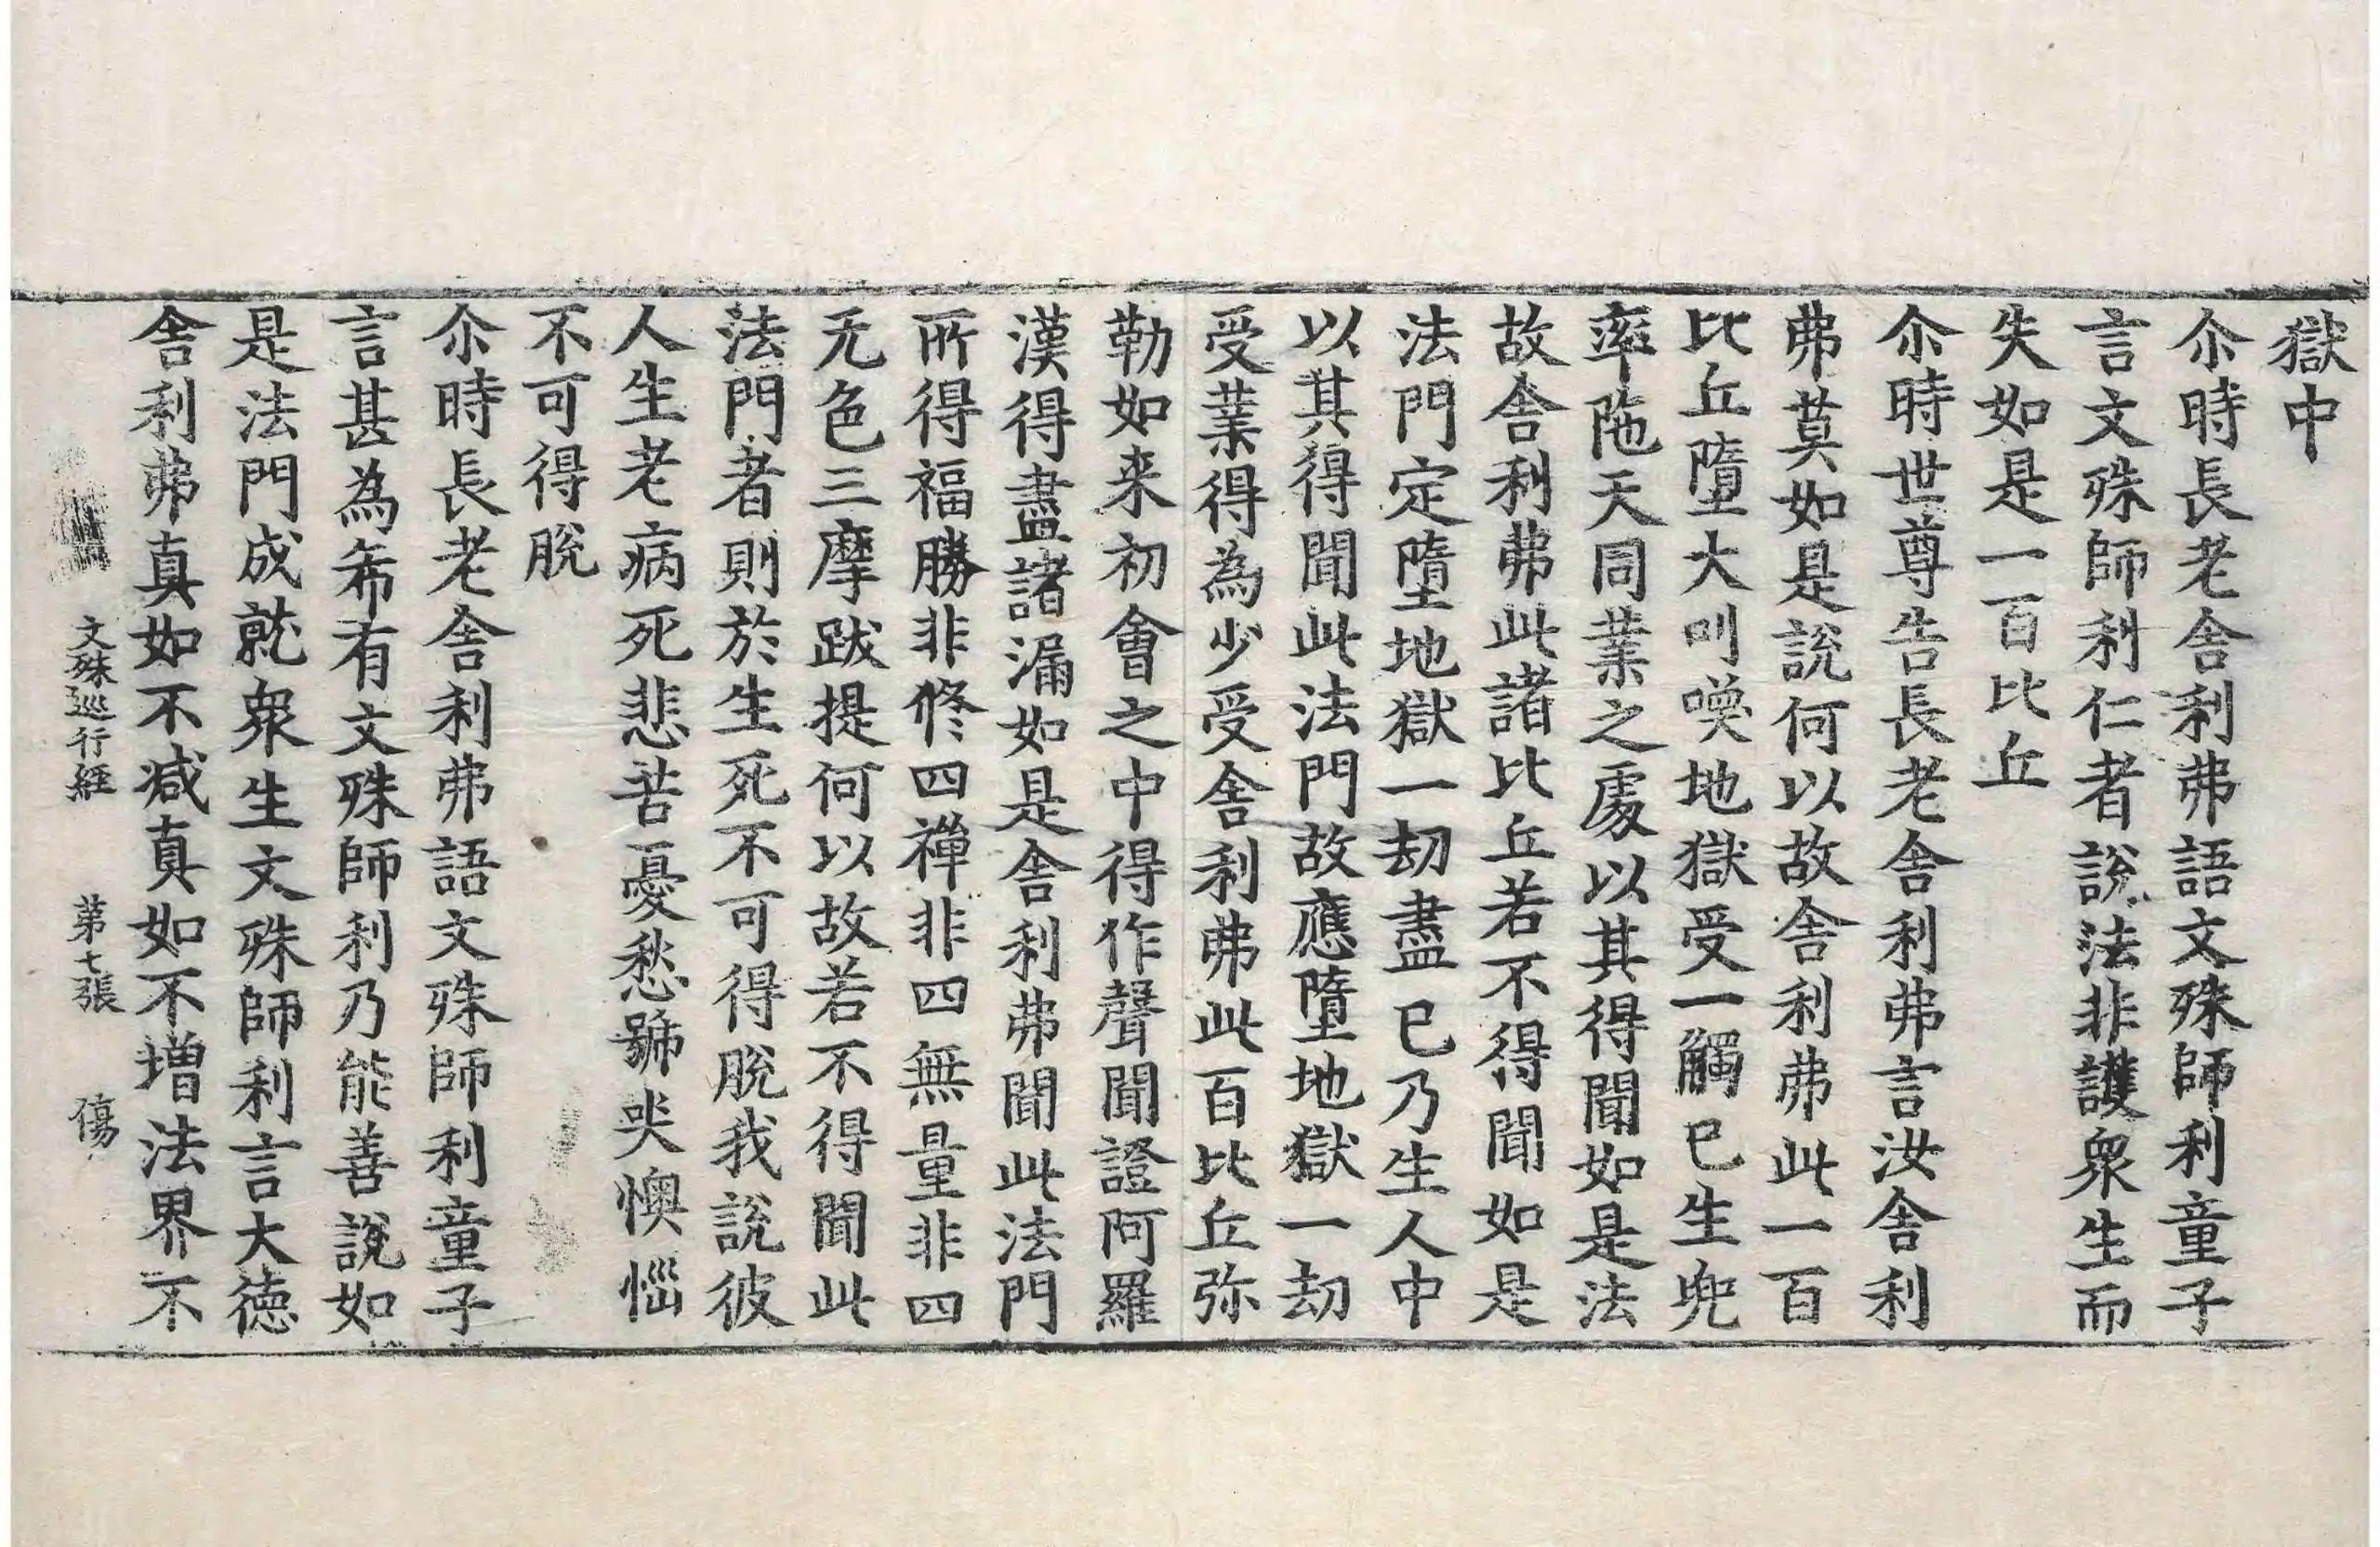 獄中
尒時長老舎利弗語文殊師利童子
言文殊師利仁者說法非護衆生而
失如是一百比丘
尒時世尊告長老舎利弗言汝舎利
弗莫如是說何以故舎利弗此一百
比丘墮大叫喚地獄受一觸已生兜
率陁天同業之處以其得聞如是法
故舎利弗此諸比丘若不得聞如是
法門定墮地獄一劫盡已乃生人中
以其得聞此法門故應墮地獄一劫
受業得為少受舎利弗此百比丘弥
勒如来初會之中得作聲聞證阿羅
漢得盡諸漏如是舎利弗聞此法門
所得福勝非修四禪非四無量非四
无色三摩跋提何以故若不得聞此
法門者則於生死不可得脫我說彼
人生老病死悲苦憂愁號哭懊惱
不可得脫
尒時長老舎利弗語文殊師利童子
言甚為希有文殊師利乃能善說如
是法門成就衆生文殊師利言大德
舎利弗真如不減真如不增法界不
文殊巡行經 第七張 傷